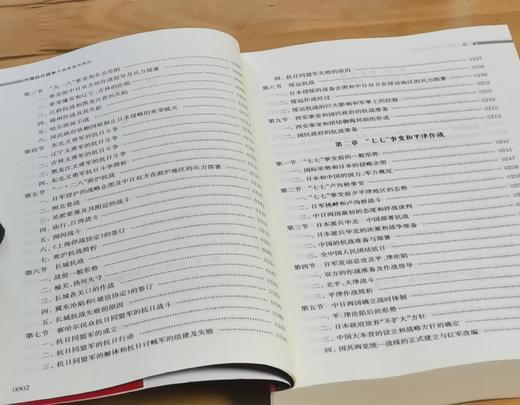 第三节 "九·一八"事变和东北沦陷
一、事变前中日双方的作战指导及兵力部署
二、事变爆发和辽宁、吉林的沦陷
三、江桥抗战和黑龙江省的失陷
四、锦州作战及失陷
五、哈尔滨保卫战
六、国民政府依赖国联制止日本侵略的希望破灭
第四节 东北义勇军的抗日斗争
一、辽宁义勇军的抗日斗争
二、吉林义勇军的抗日斗争
三、黑龙江义勇军的抗日斗争
四、东北义勇军抗战简析
第五节 "一·二八"淞沪抗战
一、日军侵沪的战略企图及中日双方在淞沪地区的兵力部署
二、闸北巷战
三、吴淞要塞及其附近的战斗
四、庙行、江湾战斗
五、浏河战斗
六、《上海停战协定》的签订
七、淞沪抗战简析
第六节 长城抗战
一、战前一般形势
二、榆关、热河失守
三、长城各关口的作战
四、冀东沦陷和《塘沽协定》的签订
五、长城抗战失败的原因
第七节 察哈尔民众抗日同盟军的抗日战斗
一、抗日同盟军的成立
二、抗日同盟军的抗日行动
三、抗日同盟军的解体和抗日讨贼军的组建及失败
0002
四、抗日同盟军失败的原因 0197
第八节 绥远抗战 0199
一、日本侵绥的战备企图和中日双方在绥远地区的兵力部署
二、绥远作战经过
三、绥远抗战的巨大影响和军事上的经验
第九节 西安事变和国民政府的抗战准备
一、西安事变和团结御侮局面的形成
二、国民政府的抗战准备
第二章 "七七"事变和平津作战
第一节 "七七"事变前的一般形势 0241
一、国际形势和日本的侵略企图
二、日本和中国的国力、军力概况
第二节 "七七"卢沟桥事变
一、"七七"事变前夕平津地区的态势
二、日军挑衅和卢沟桥战斗
三、中日两国最初的态度和停战谈判
第三节 日本派兵华北 中国部署抗战
一、日本派兵华北的决策和战争准备
二、中国的抗战准备与部署
三、全中国人民团结抗日
第四节 日军发动总攻及平、津沦陷
一、双方的作战准备及作战指导
二、北平、天津战斗
三、平津作战简析
第五节 中日两国确立战时体制
一、平、津沦陷后的形势
二、日本政府放弃"不扩大"方针
三、中国大本营的设立和战略方针的确定
四、国共两党统一战线的正式建立与红军改编